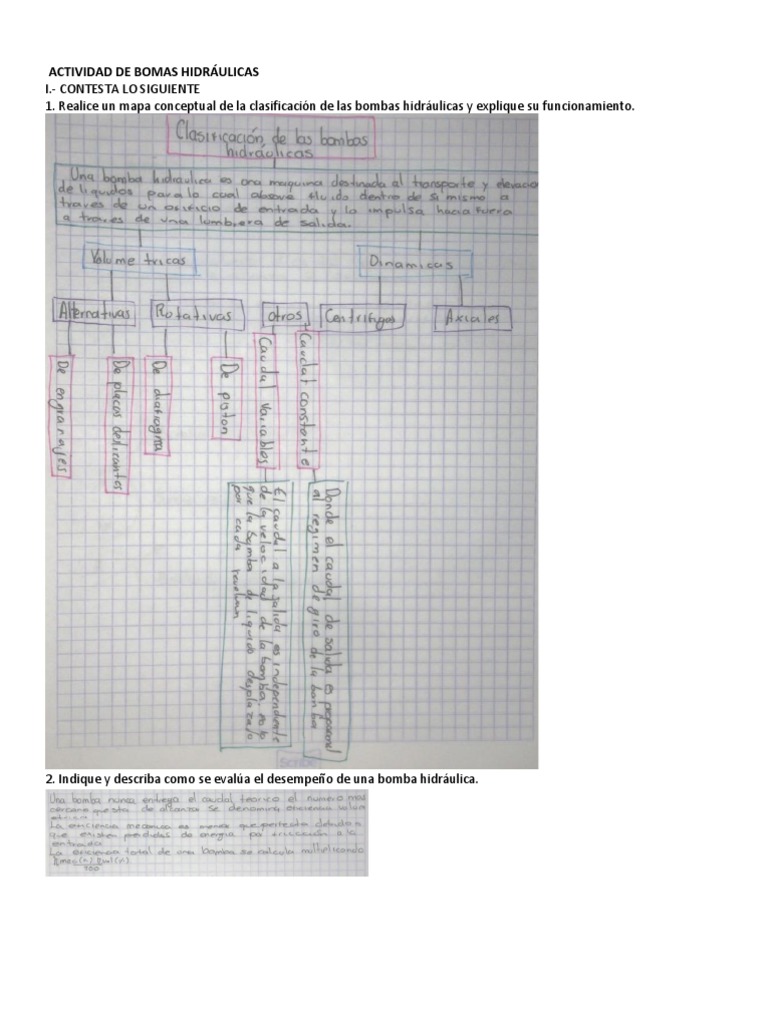 ACTIVIDAD DE BOMAS HIDRÁULICAS
I.- CONTESTA LO SIGUIENTE
1. Realice un mapa conceptual de la clasificación de las bombas hidráulicas y explique su funcionamiento.
Clasificación de las bombas
hidráulicas
Una bomba hidráulica es una maquina destinada al transporte y elevacion
de liquidos para lo cual absove fluido dentro de si mismo a
traves de un orificio de entrada y lo impulsa hacia fuera
a traves de una lumbrera de salida.
Volumetricas
Dinamicas
Alternativas
Rotativas
otros
Centrifugos
Axiales
De engranajes
De placas deslizantes
De diafragma
De piston
Caudal Variables
Caudal constante
El caudal a la salida es independiente
de la velocidad de la bomba, no lo
que la bomba de liquido desplazado
por cada
Donde el caudal de salida es
al regimen de giro de la bomba
Scribe
2. Indique y describa como se evalúa el desempeño de una bomba hidráulica.
Una bomba nunca entrega el caudal teorico el numero mas
cercano que sta de alcanzar se denomina eficiencia
La eficiencia mecanica es menos que perfecta debido a
que existen perdidas de energia por fricccion a la
entrada
La eficiencia total de una bomba se calcula multiplicando
100